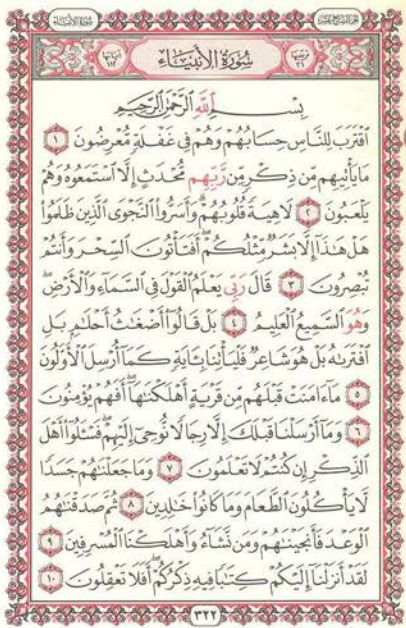 سُورَةُ الأَنبِيَاء
الجزء السابع عشر
ترتيبها ٢١
سُورَةُ الْأَنبِيَاءِ
آياتها ١١٢
بِسْمِ اللَّهِ الرَّحْمَٰنِ الرَّحِيمِ
ٱقْتَرَبَ لِلنَّاسِ حِسَابُهُمْ وَهُمْ فِى غَفْلَةٍ مُّعْرِضُونَ ١
مَا يَأْتِيهِم مِّن ذِكْرٍ مِّن رَّبِّهِم مُّحْدَثٍ إِلَّا ٱسْتَمَعُوهُ وَهُمْ
يَلْعَبُونَ ٢ لَاهِيَةً قُلُوبُهُمْ ۗ وَأَسَرُّوا۟ ٱلنَّجْوَى ٱلَّذِينَ ظَلَمُوا۟
هَلْ هَٰذَآ إِلَّا بَشَرٌ مِّثْلُكُمْ ۖ أَفَتَأْتُونَ ٱلسِّحْرَ وَأَنتُمْ
تُبْصِرُونَ ٣ قَالَ رَبِّى يَعْلَمُ ٱلْقَوْلَ فِى ٱلسَّمَآءِ وَٱلْأَرْضِ ۖ
وَهُوَ ٱلسَّمِيعُ ٱلْعَلِيمُ ٤ بَلْ قَالُوٓا۟ أَضْغَٰثُ أَحْلَٰمٍۭ بَلِ
ٱفْتَرَىٰهُ بَلْ هُوَ شَاعِرٌ فَلْيَأْتِنَا بِـَٔايَةٍ كَمَآ أُرْسِلَ ٱلْأَوَّلُونَ
٥ مَآ ءَامَنَتْ قَبْلَهُم مِّن قَرْيَةٍ أَهْلَكْنَٰهَآ ۖ أَفَهُمْ يُؤْمِنُونَ
٦ وَمَآ أَرْسَلْنَا قَبْلَكَ إِلَّا رِجَالًا نُّوحِىٓ إِلَيْهِمْ ۖ فَسْـَٔلُوٓا۟ أَهْلَ
ٱلذِّكْرِ إِن كُنتُمْ لَا تَعْلَمُونَ ٧ وَمَا جَعَلْنَٰهُمْ جَسَدًا
لَّا يَأْكُلُونَ ٱلطَّعَامَ وَمَا كَانُوا۟ خَٰلِدِينَ ٨ ثُمَّ صَدَقْنَٰهُمُ
ٱلْوَعْدَ فَأَنجَيْنَٰهُمْ وَمَن نَّشَآءُ وَأَهْلَكْنَا ٱلْمُسْرِفِينَ ٩
لَقَدْ أَنزَلْنَآ إِلَيْكُمْ كِتَٰبًا فِيهِ ذِكْرُكُمْ ۖ أَفَلَا تَعْقِلُونَ ١٠
٣٢٢